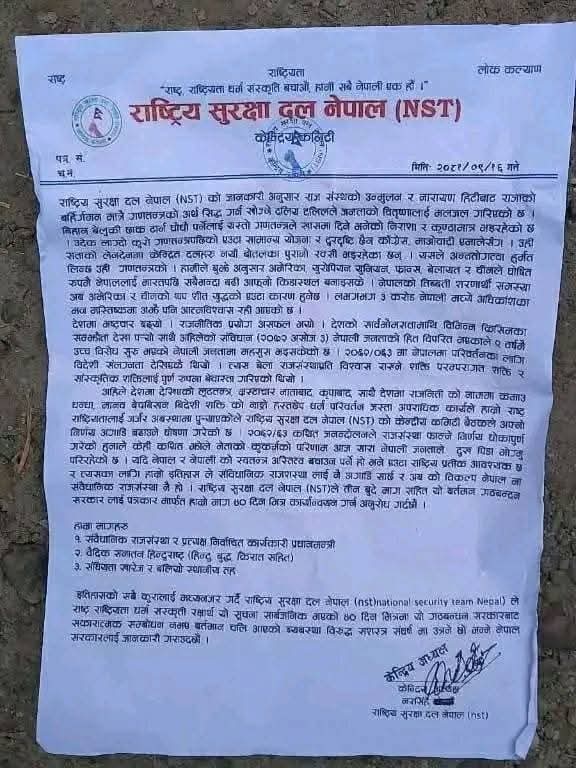 राष्ट्र राष्ट्रियता लोक कल्याण
"राष्ट्र, राष्ट्रियता धर्म संस्कृति बचाऔं, हामी सबै नेपाली एक हौं ।"
राष्ट्रिय सुरक्षा दल नेपाल (NST)
केन्द्रिय कमिटी
पत्र सं.
च.नं. मितिः २०८१/०९/१६ गते
राष्ट्रिय सुरक्षा दल नेपाल (NST) को जानकारी अनुसार राज संस्थाको उन्मुलन र नारायण हिटीबाट राजाको
बर्हिगमन मात्रै गणतन्त्रको अर्थ सिद्ध गर्न खोज्ने दलिय दलिलले जनताको वितृष्णालाई मलजल गरिएको छ ।
बिहान बेलुकी छाक टार्न धौधौ पर्नेलाई यस्तो गणतन्त्रले खासमा दिने भनेको निराशा र कुण्ठामात्र भइरहेको छ
। उदेक लाग्दो कुरो गणतन्त्रपछिको एउटा सामान्य योजना र दुरदृष्टि छैन काँग्रेस, माओवादी एमालेसँग । उही
सत्ताको लेनदेनमा केन्द्रित दलहरु नयाँ बोतलका पुरानो रक्सी भइरहेका छन् । यसले अन्ततोगत्वा दुर्गत
लिन्छ उही गणतन्त्रको । हामीले बुझे अनुसार अमेरिका, युरोपियन युनियन, फ्रान्स, बेलायत र चीनले घोषित
रुपमै नेपाललाई भारतपछि सबैभन्दा बढी आफ्नो क्रिडास्थल बनाइसके । नेपालको तिब्बती शरणार्थी समस्या
अब अमेरिका र चीनको थप शीत युद्धको एउटा कारण हुनेछ । लगभगमा ३ करोड नेपाली मध्ये अधिकांशका
मन मस्तिष्कमा अझै पनि आत्मविश्वास रही आएको छ ।
देशमा भ्रष्टाचार बढ्यो । राजनीतिक प्रयोग असफल भयो । देशको सार्वभौमसत्तामाथि विभिन्न किसिमका
सम्झौता देखा पर्‍यो साथै अहिलेको संविधान (२०७२ असोज ३) नेपाली जनताको हित विपरित भएकाले ९ वर्षमै
उच्च विरोध सुरु भएको नेपाली जनतामा महसुस भइसकेको छ । २०६२/०६३ मा नेपालमा परिवर्तनका लागि
विदेशी संलग्नता देखिएकै थियो । त्यस बेला राजसंस्थाप्रति विश्वास राख्ने शक्ति परम्परागत शक्ति र
सांस्कृतिक शक्तिलाई पुर्ण रुपमा बेवास्ता गरिएको थियो ।
अहिले देशमा देखिएको लुटतन्त्र, भ्रष्टाचार नातावाद, कृपावाद, साथै देशमा राजनिती को नाममा कमाउ
धन्धा, मानव बेचबिखन बिदेशी शक्ति को नाङ्गो हस्तक्षेप धर्म परिवर्तन जस्ता अपराधिक कार्यले हाम्रो राष्ट्र
राष्ट्रियतालाई जर्जर अबस्थामा पुर्‍याएकोले राष्ट्रिय सुरक्षा दल नेपाल (NST) को केन्द्रीय कमिटी बैठकले अफ्नो
निर्णय अगाडी बढाउने घोषणा गरेको छ । २०६२/६३ कथित जनआन्दोलनले राजसंस्था फाल्ने निर्णय धोकापूर्ण
गरेको हुनाले केही कथित भनौदा नेताको कुकर्मको परिणाम आज सारा नेपाली जनताले दुख पिडा भोग्नु
परिरहेको छ । यदि नेपाल र नेपाली को स्वतन्त्र अस्तित्व बचाउन पर्ने हो भने एउटा राष्ट्रिय प्रतीक आवश्यक छ
र त्यसका लागि हाम्रो इतिहास ले संवैधानिक राजसंस्था लाई नै अगाडी सार्छ र अब को विकल्प नेपाल मा
संवैधानिक राजसंस्था नै हो । राष्ट्रिय सुरक्षा दल नेपाल (NST)ले तीन बुदे माग सहित यो बर्तमान गठबन्दन
सरकार लाई पत्रकार मार्फत हाम्रो माग ७० दिन भित्र कार्यान्वयन गर्न अनुरोध गर्दछौं ।
हाम्रा मागहरु
१. संवैधानिक राजसंस्था र प्रत्यक्ष निर्वाचित कार्यकारी प्रधानमन्त्री
२. वैदिक सनातन हिन्दुराष्ट्र (हिन्दु बुद्ध किरात सहित)
३. संघियता खारेज र बलियो स्थानीय तह
इतिहासको सबै कुरालाई मध्यनजर गर्दै राष्ट्रिय सुरक्षा दल नेपाल (nst)national security team Nepal) ले
राष्ट्र राष्ट्रियता धर्म संस्कृती रक्षार्थ यो सुचना सार्बजनिक भएको ७० दिन भित्रमा यो गठबन्दन सरकारबाट
सकारात्मक सम्बोधन नभए बर्तमान चलि आएको ब्यबस्था विरुद्ध सशस्त्र संघर्ष मा उत्रने छौं भन्ने नेपाल
सरकारलाई जानकारी गराउदछौं ।
केन्द्रिय अध्यक्ष
केन्द्रिय अध्यक्ष
नरसिंह
राष्ट्रिय सुरक्षा दल नेपाल (nst)